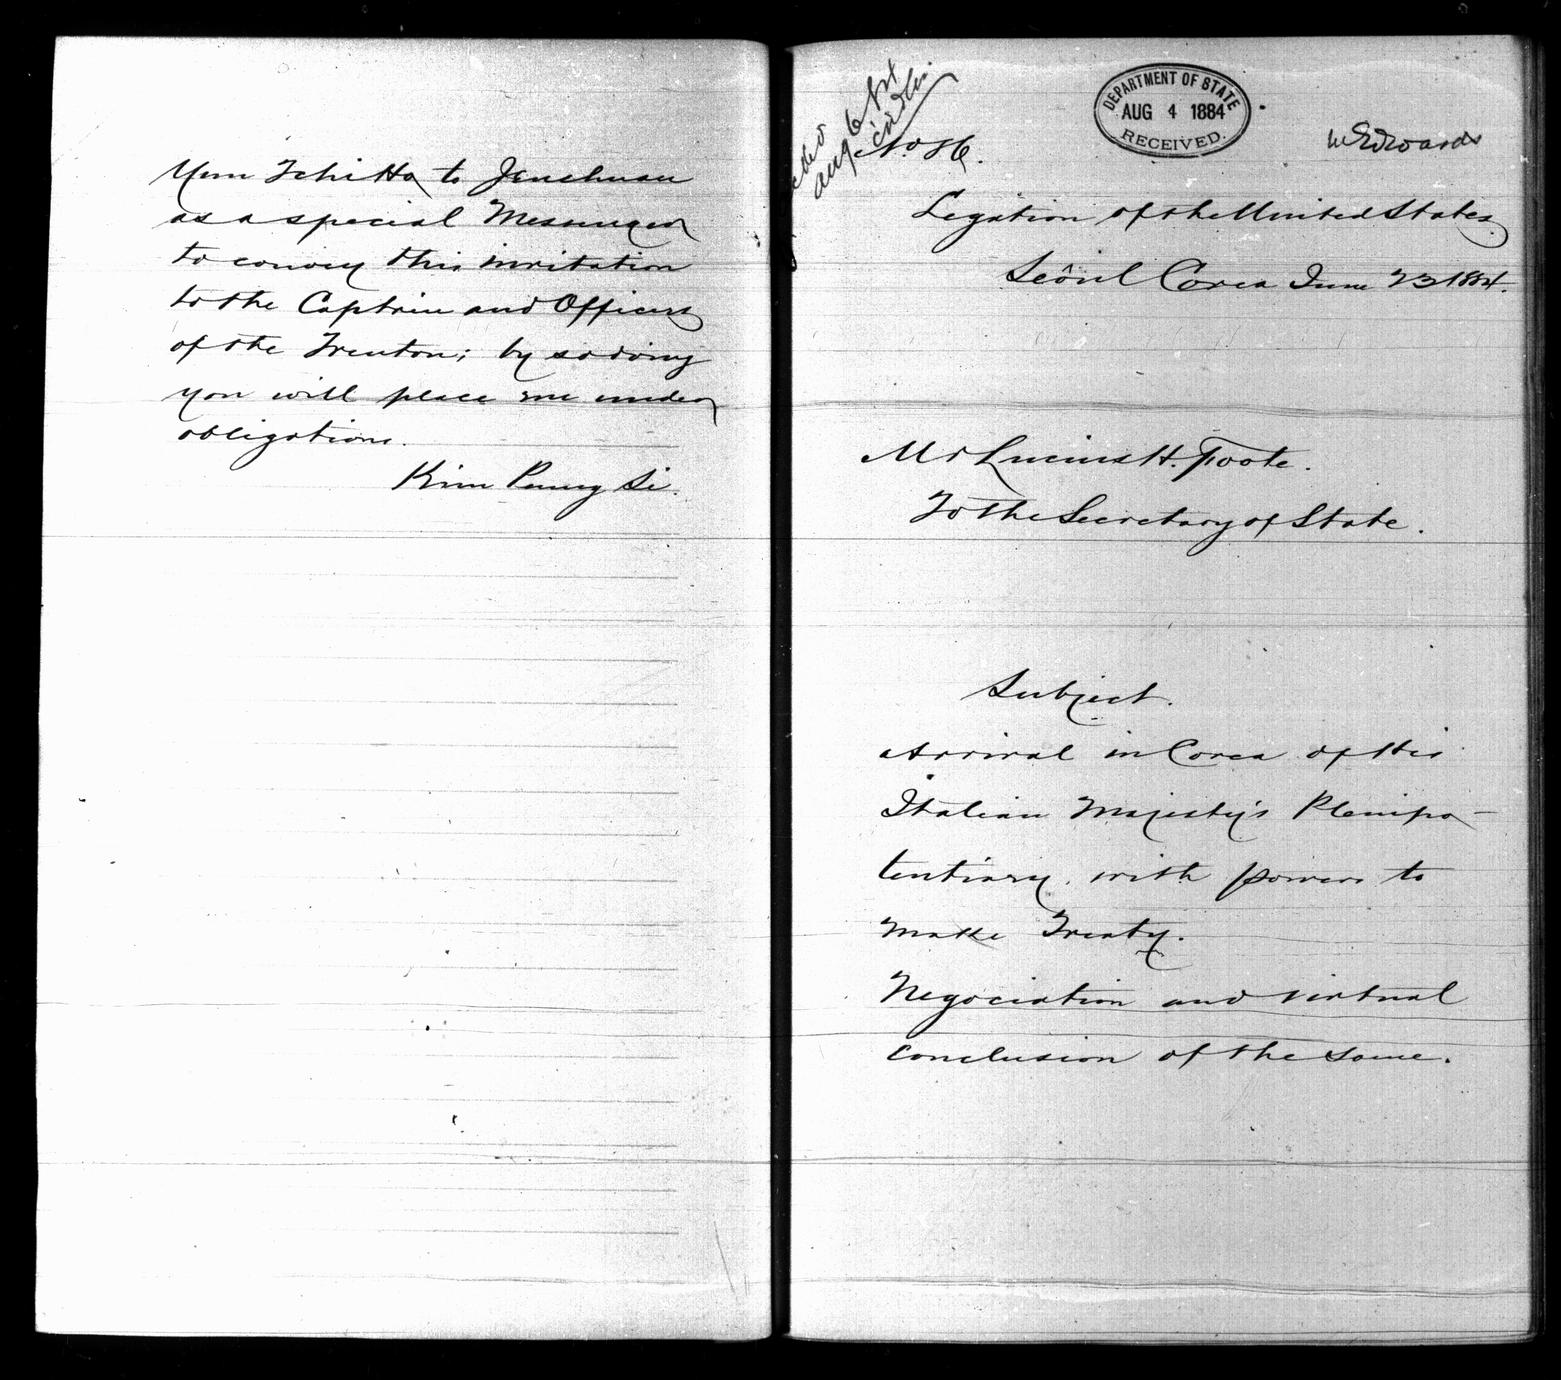 Yun Tchi Ho to Jenchuan
as a special Messenger
to convey this invitation
to the Captain and Officers
of the Trenton; by so doing
you will place me under
obligations.
Kim Pung Si.
Aug 6
DEPARTMENT OF STATE
AUG 4 1884
RECEIVED.
No 86.
Legation of the United States
Seôul Corea June 23 1884.
Mr Lucius H. Foote.
To the Secretary of State.
Subject.
Arrival in Corea of His
Italian Majesty's Plenipo-
tentiary, with powers to
make Treaty.
Negociation and virtual
conclusion of the same.